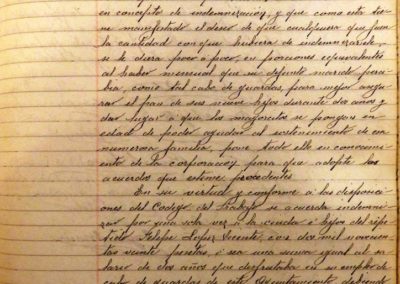 en concepto de indemnización, y que como esta tie-
ne manifestado el deseo de que cualquiera que fuera
la cantidad con que hubiera de indemnizarsele,
se le diera poco á poco, en porciones equivalentes
al haber mensual que su difunto marido perci-
bia, como tal cabo de guardas, para mejor asegu-
rar el pan de sus nueve hijos durante dos años y
dar lugar á que los mayorcitos se pongan en
edad de poder ayudar al sostenimiento de esa
numerosa familia, pone todo ello en conocimien-
to de la corporación para que adopte los
acuerdos que estime procedentes.
En su virtud y conforme á las disposicio-
nes del Codigo del Trabajo se acuerda indemni-
zar por una sola vez á la viuda é hijos del repe-
tido Felipe Lopez Vicente, con dos mil novecien-
tas veinte pesetas, ó sea una suma igual al sa-
lario de dos años que disfrutaba en su empleo de
cabo de guardas de este Ayuntamiento, debiendo